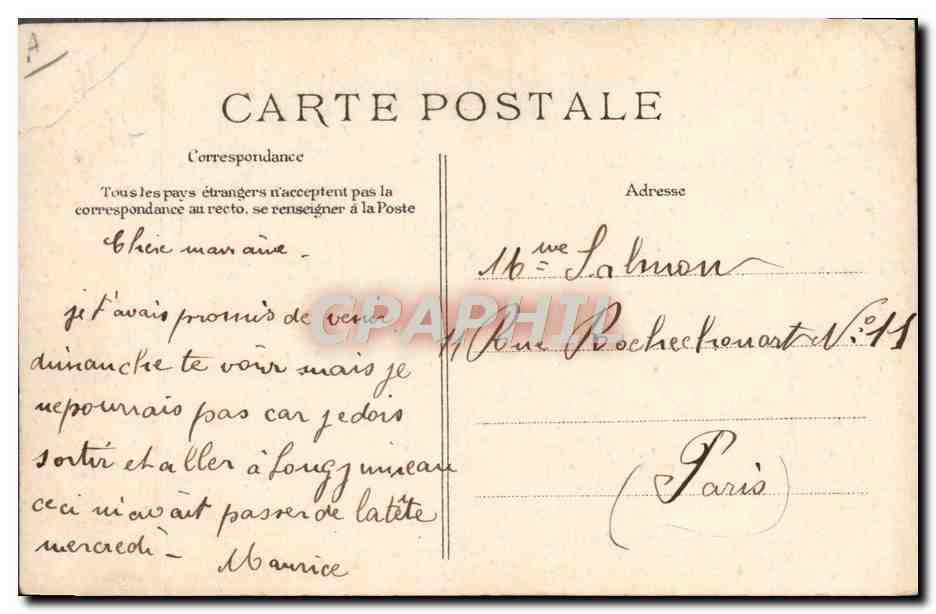 A
CARTE POSTALE
Correspondance
Tous les pays étrangers n'acceptent pas la
correspondance au recto, se renseigner à la Poste
Chère marraine.
je t'avais promis de venir
dimanche te voir mais je
ne pourrais pas car je dois
sortir et aller à Longjumeau
ceci m'avait passer de la tête
mercredi -
Maurice
Adresse
Mme Salmon
11 Rue Rochechouart No 11
(Paris)
CPAPHIL